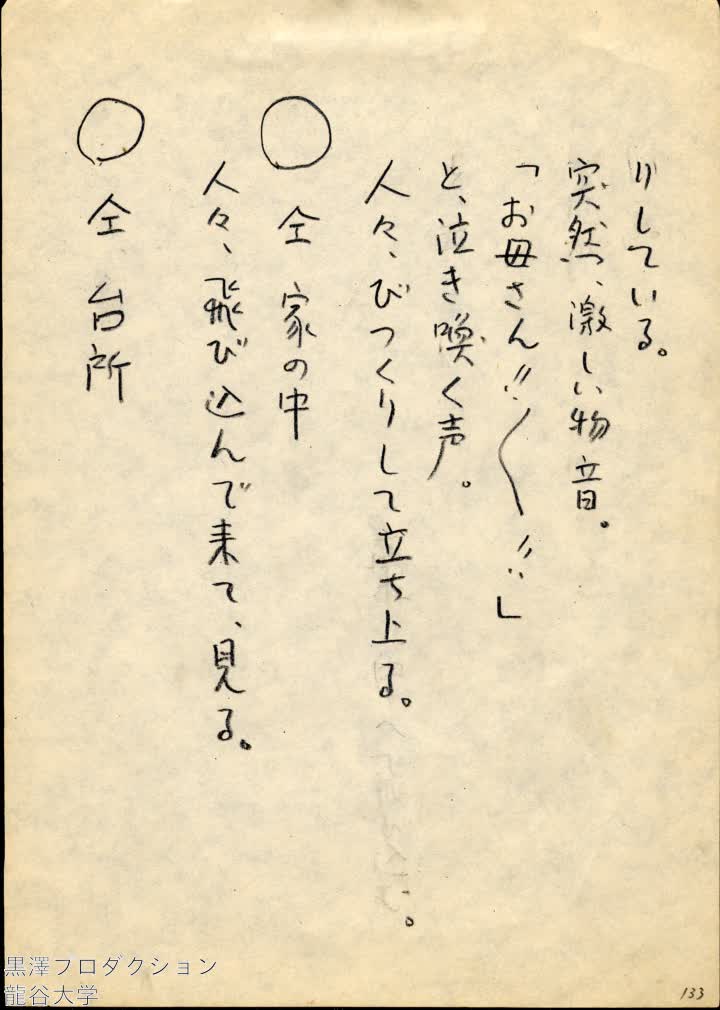 りしている。
突然、激しい物音。
「お母さん!!〱!!」
と、泣き喚く声。
人々、びつくりして立ち上る。
○ 仝 家の中
人々、飛び込んで来て、見る。
○ 仝 台所
黒澤プロダクション
龍谷大学
133